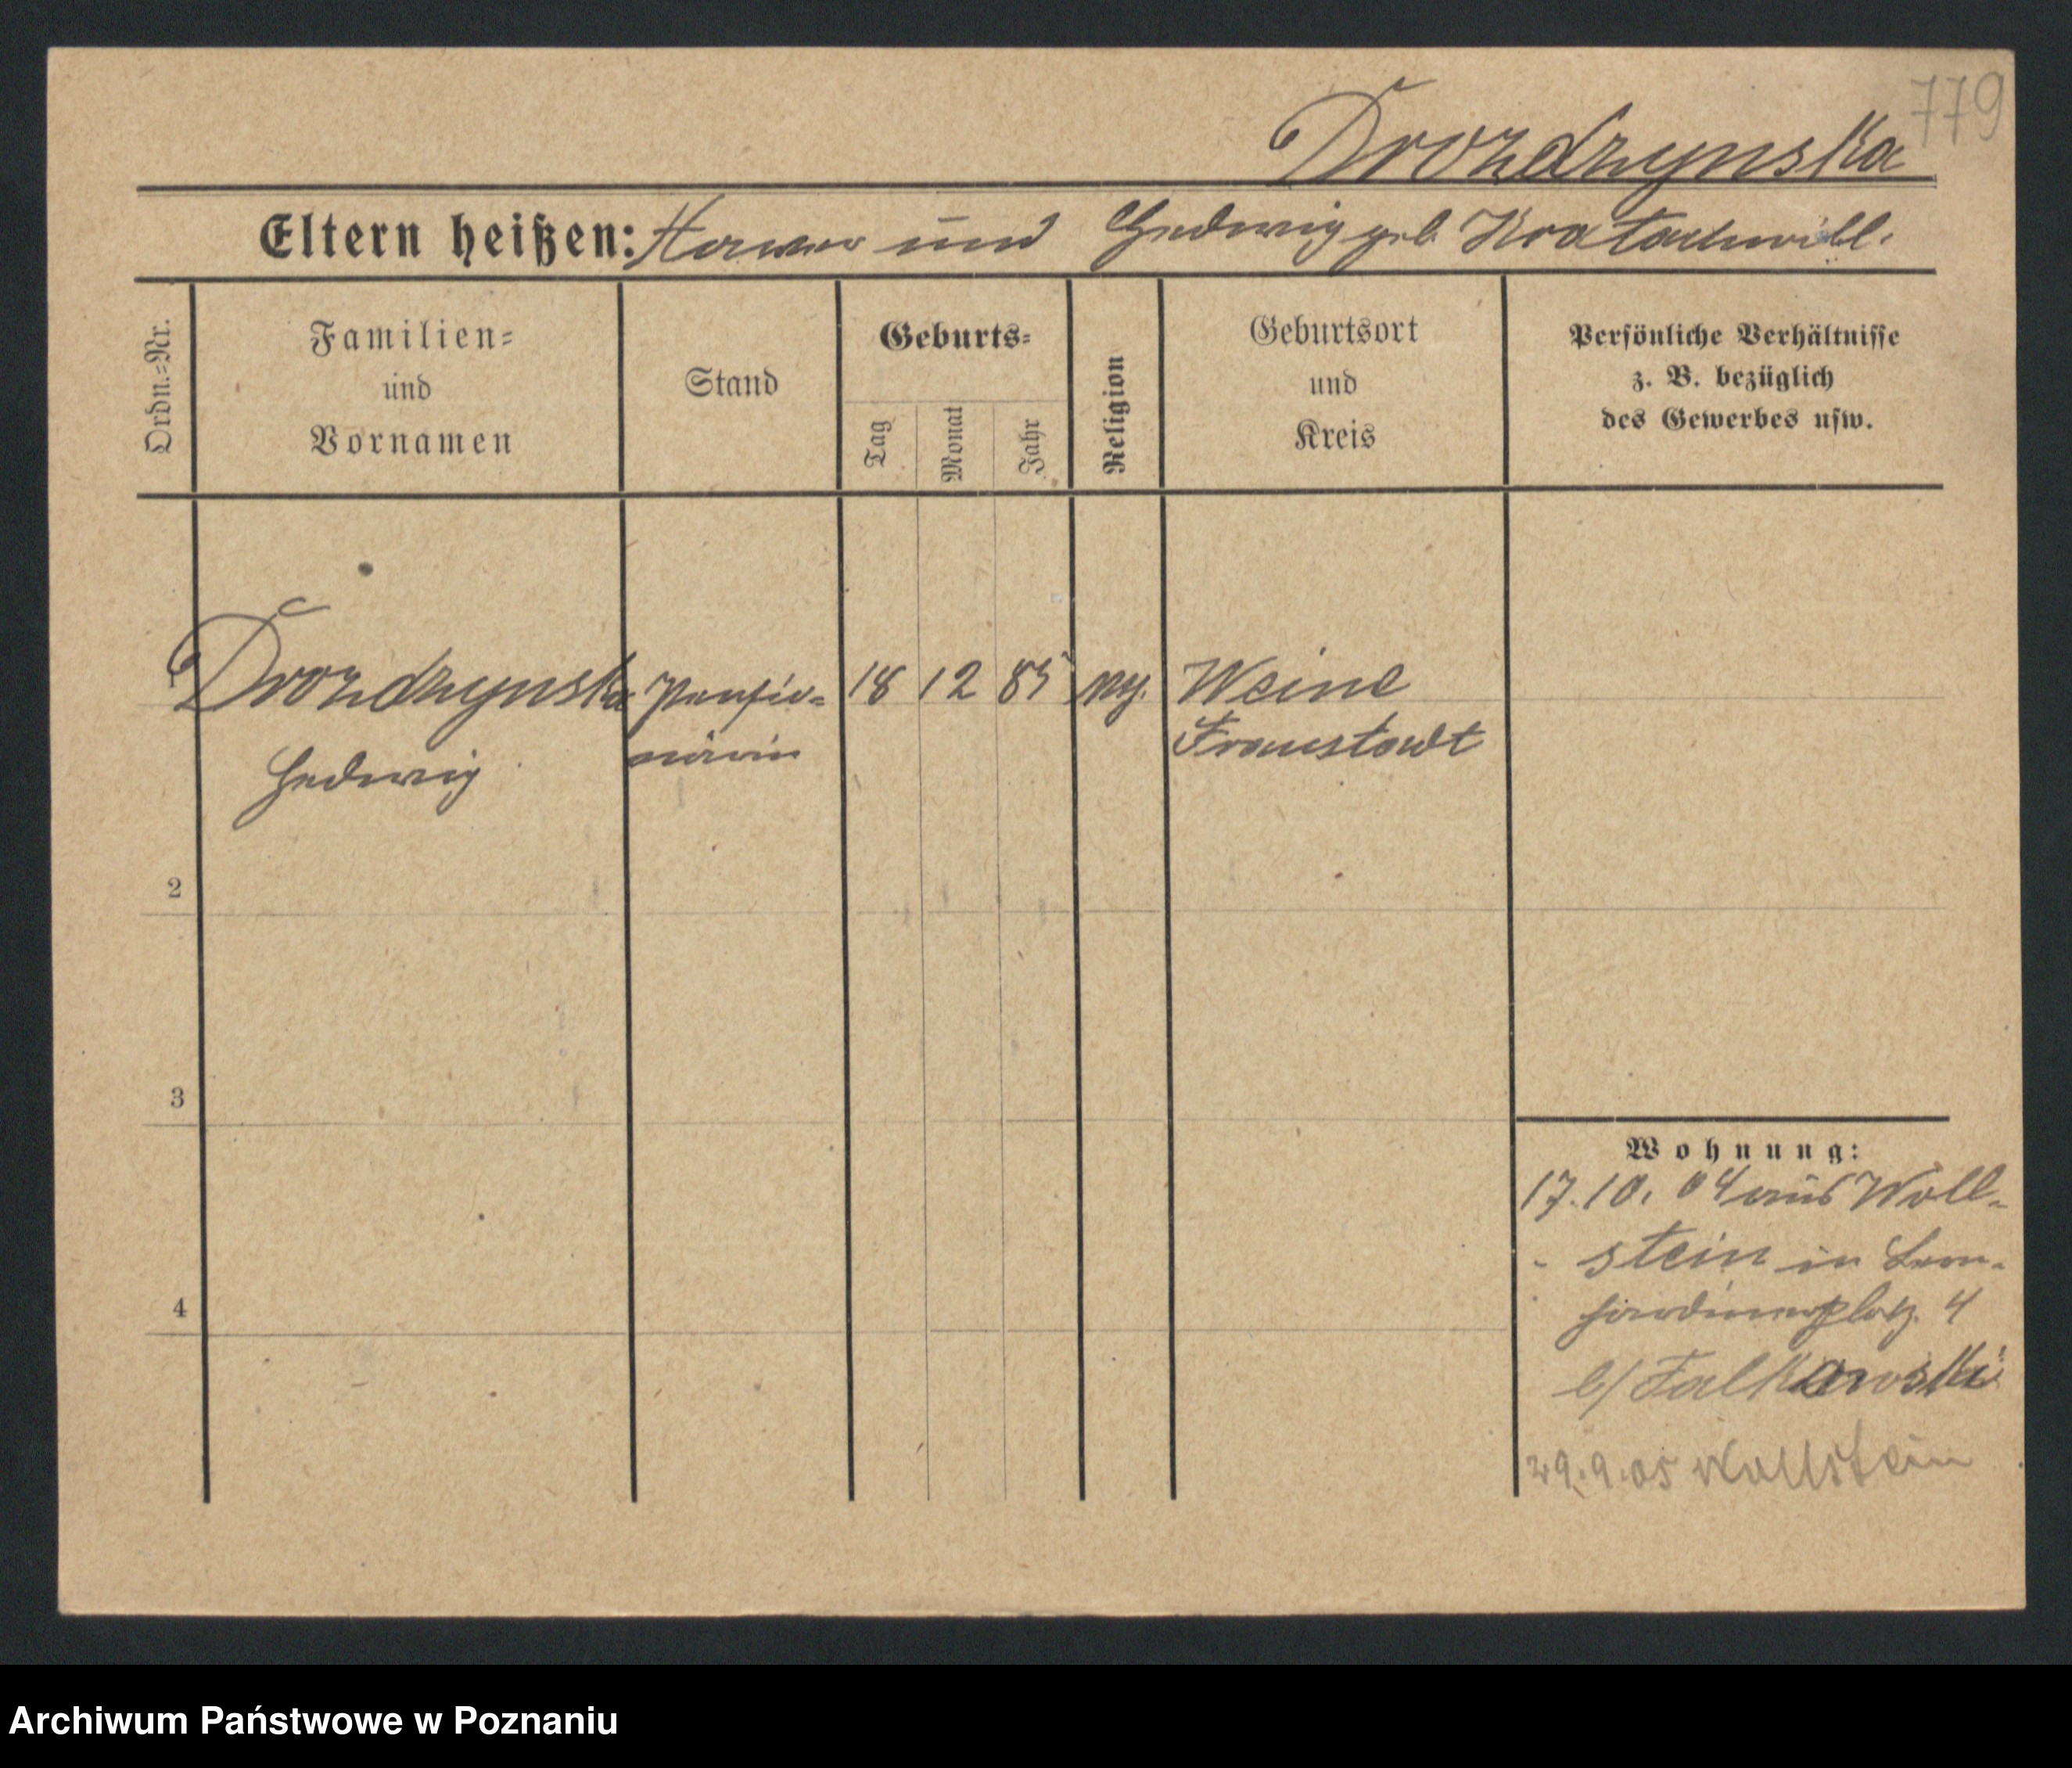 779
Drozdzynska
Eltern heißen: und Hedwig geb.
Ordn.=Nr.
Familien=
und
Vornamen
Stand
Geburts=
Tag
Monat
Jahr
Religion
Geburtsort
und
Kreis
Persönliche Verhältnisse
z. B. bezüglich
des Gewerbes usw.
1 Drozdzynska Pensio= 18 12 85 Weine
Hedwig närin Fraustadt
2
3
4
Wohnung:
17.10.04 aus Woll=
stein in Bern=
hardinerplatz. 4
b/ Falkowski
29.9.05 Wollstein
Archiwum Państwowe w Poznaniu